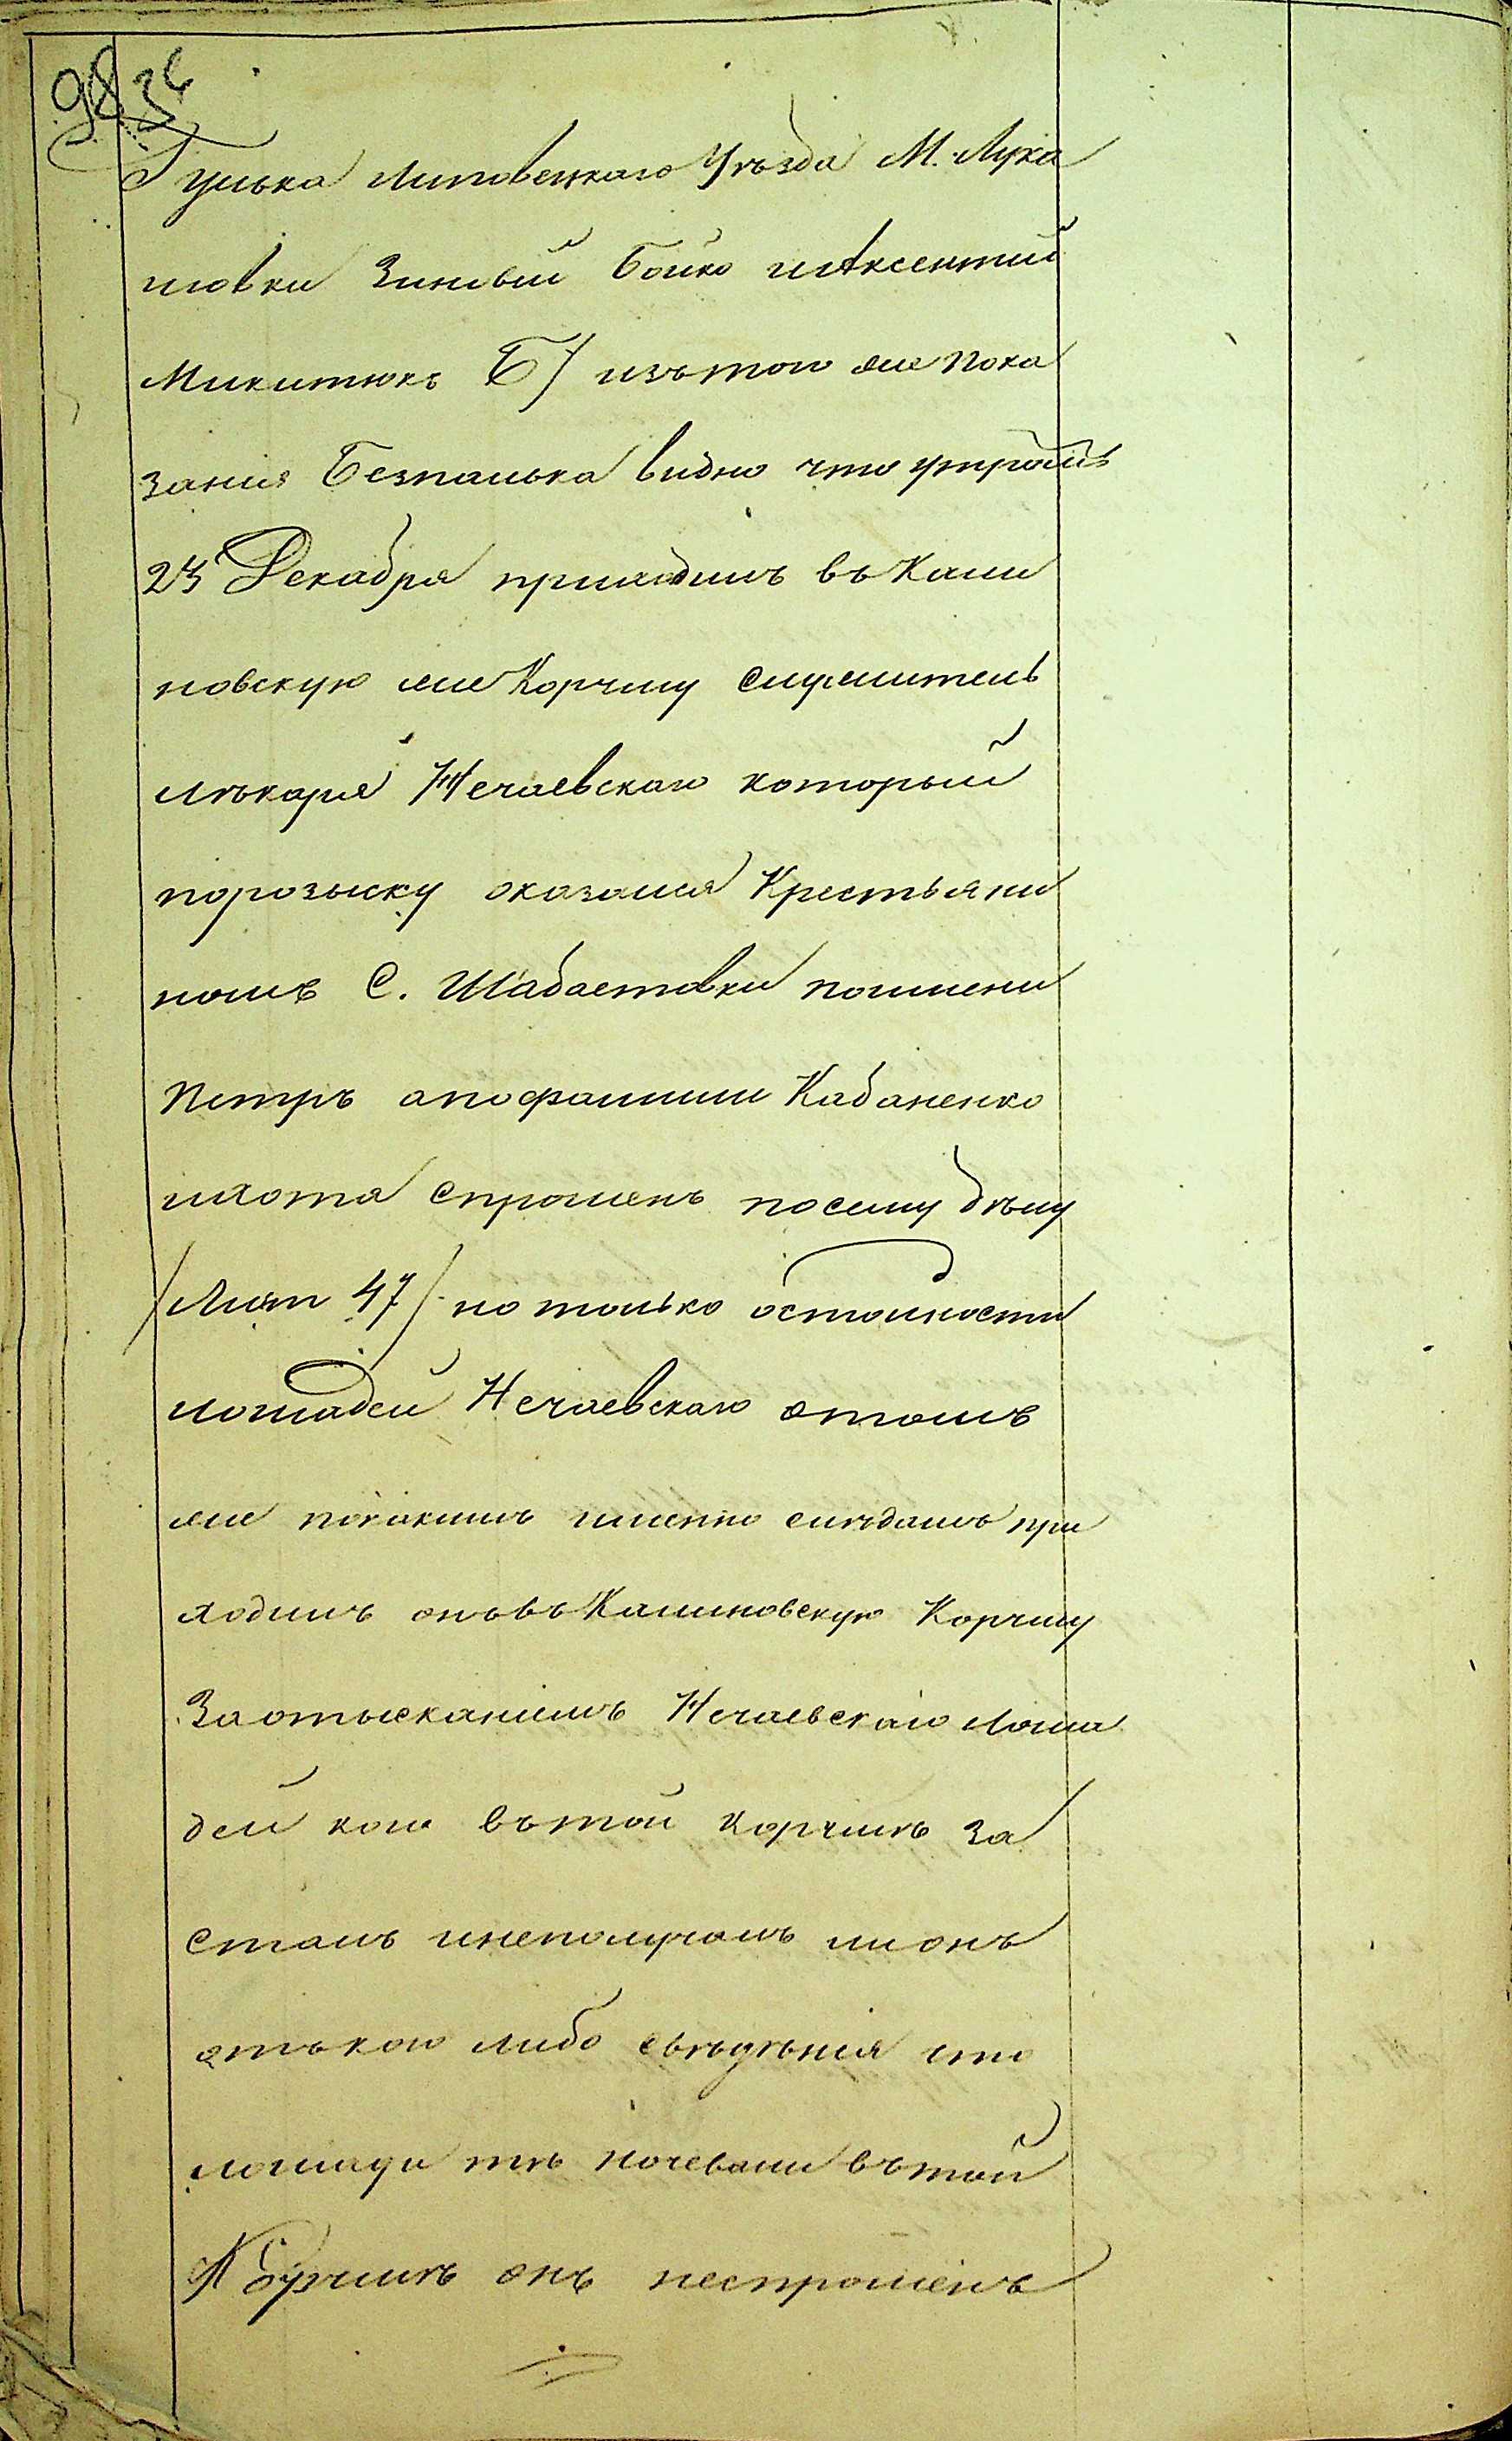 98 36
Гулька Липовецкаго Уѣзда М. Лука
шовки Зиновій Бойко иАксентій
Микитюкъ Б/ изъ того же пока
занія Безпалька видно что утромъ
23 Декабря приходилъ въ Кали
новскую же Корчму служитель
лѣкаря Нечаевскаго который
порозыску оказался Крестьяни
номъ С. Шабастовки поимени
Петръ апофамиліи Кабаненко
ихотя спрошенъ посему дѣлу
/Лист 47/ но только остоимости
лошадей Нечаевскаго отомъ
же покакимъ именно слѣдамъ при
ходилъ онъ въ Калиновскую Корчму
Заотысканіемъ Нечаевскаго лоша
дей кого вътой корчмѣ за
сталъ инеполучалъ ли онъ
отъ кого либо свѣдѣнія что
лошади тѣ ночевали вътой
Корчмѣ онъ неспрошенъ